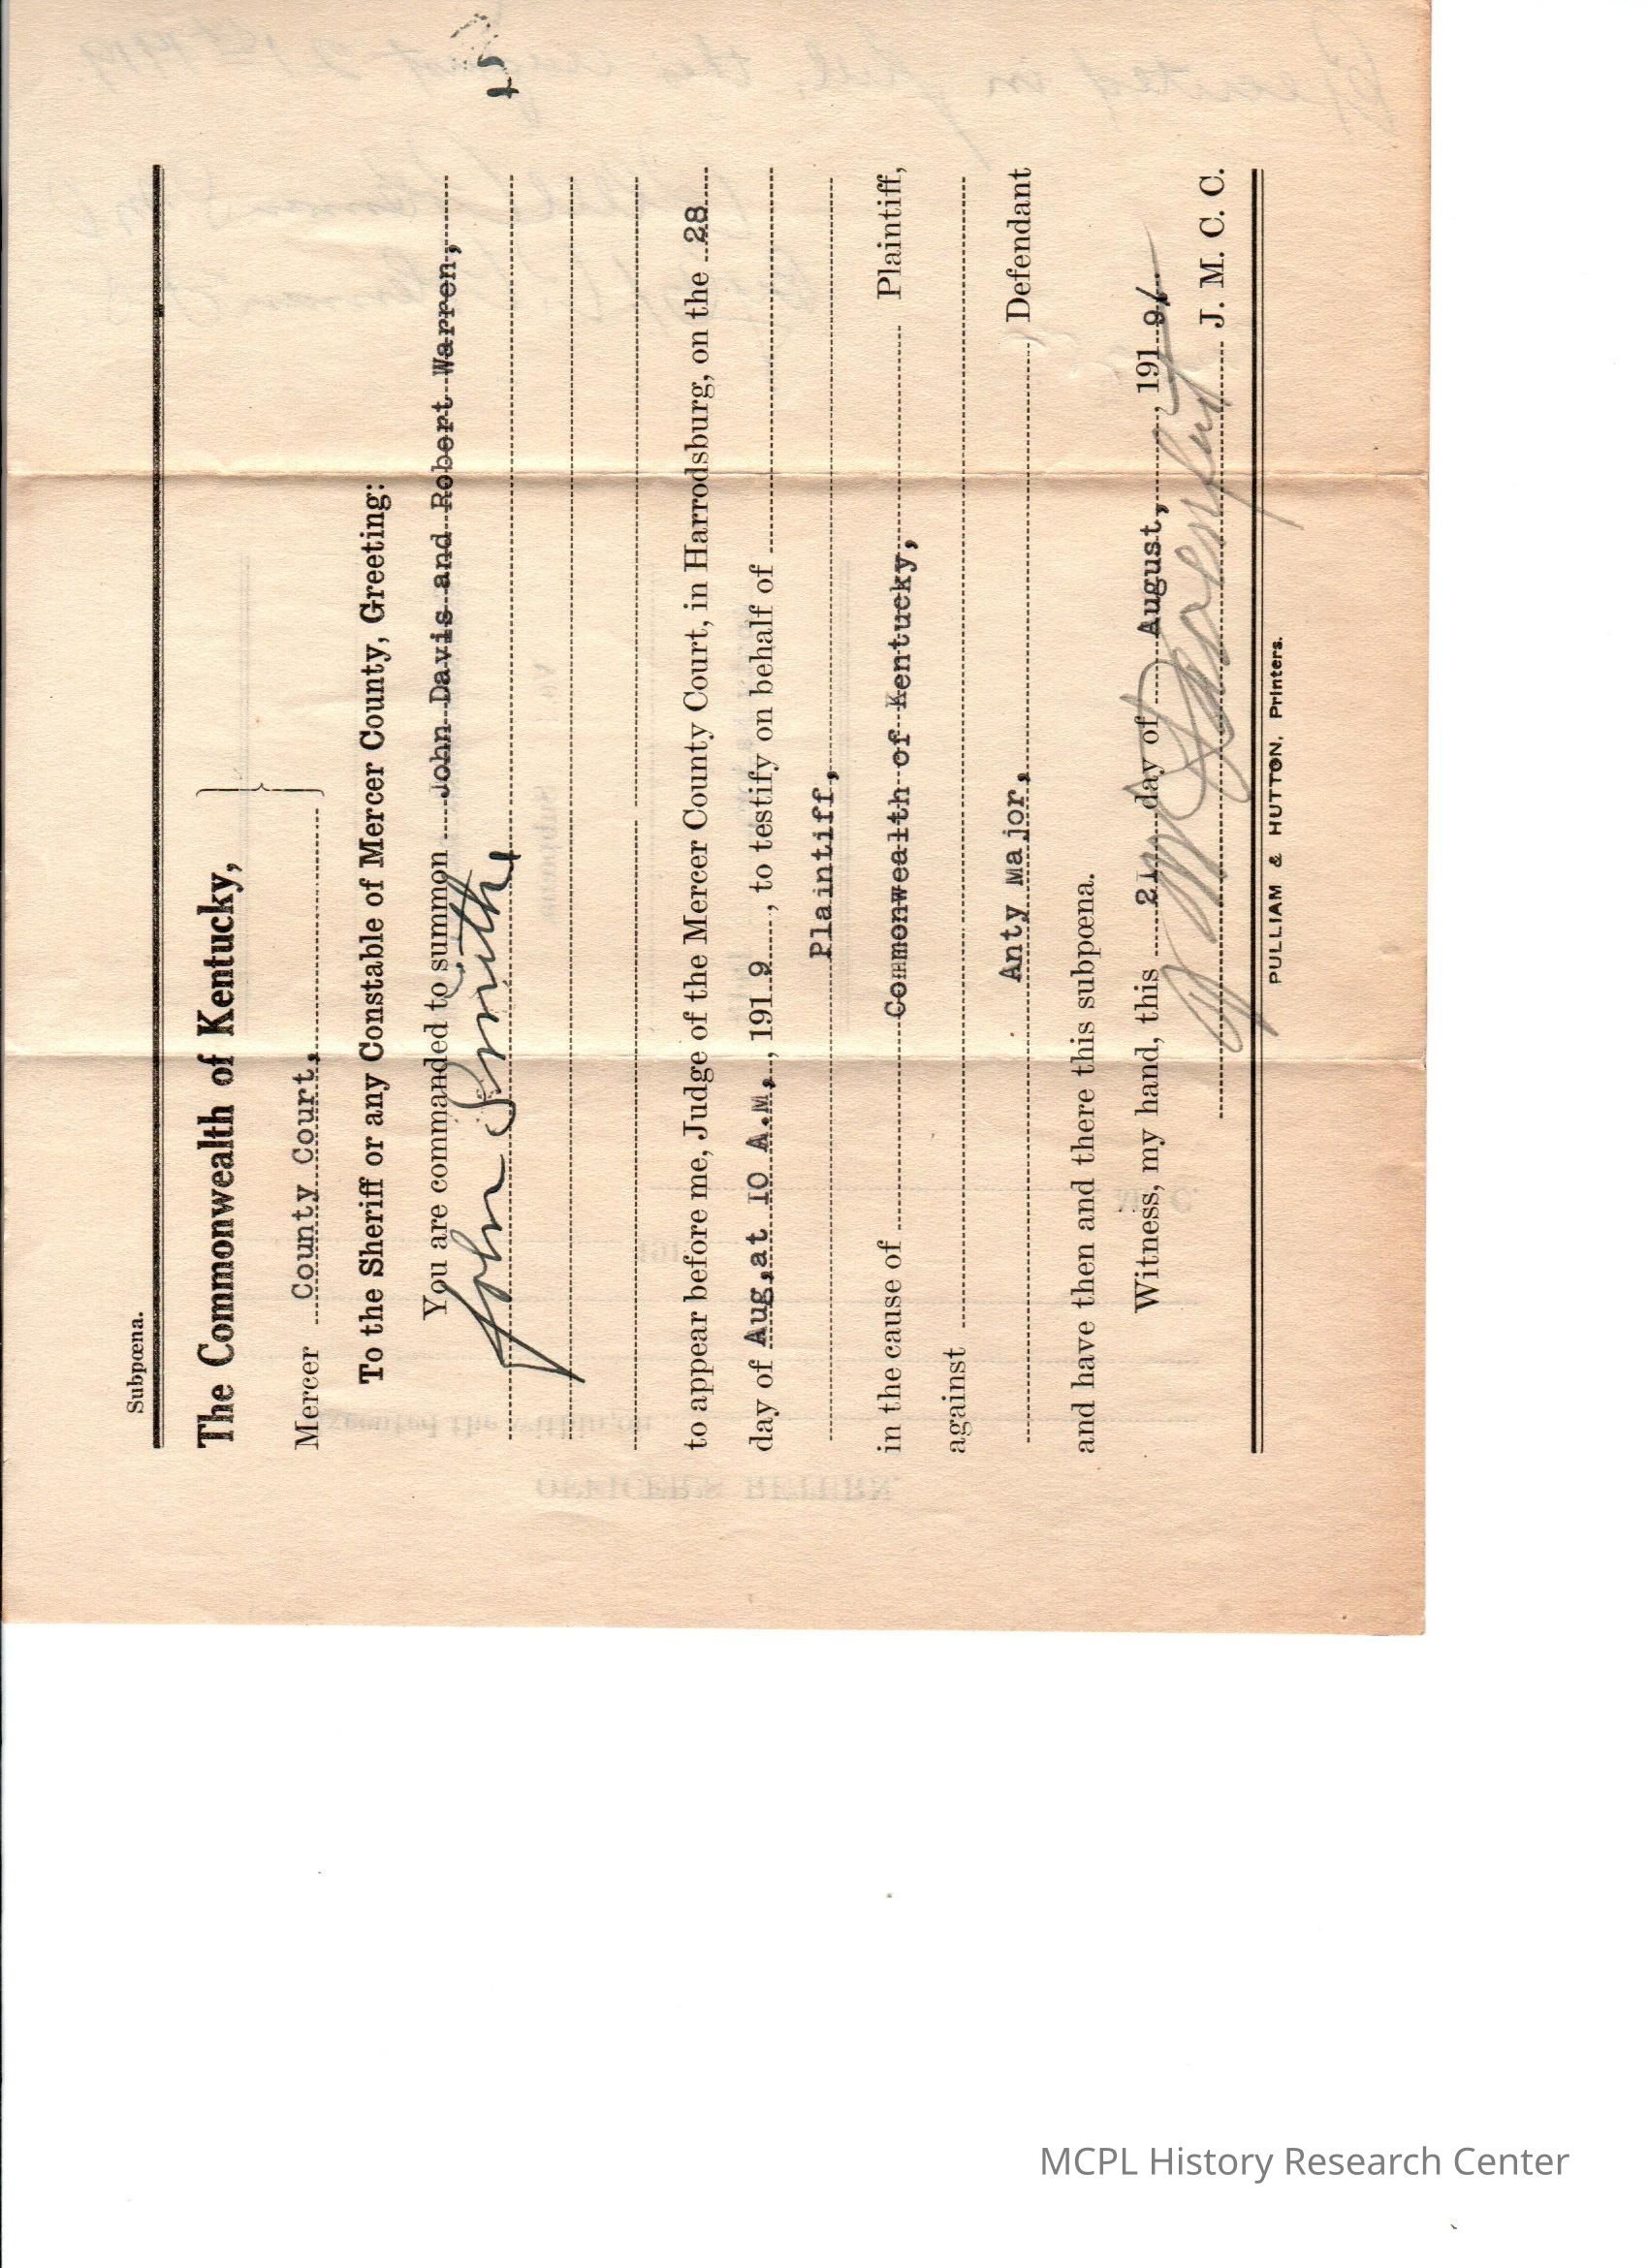 Subpœna.
The Commonwealth of Kentucky,
Mercer County Court,
To the Sheriff or any Constable of Mercer County, Greeting:
You are commanded to summon John Davis and Robert Warren,
John Smith
to appear before me, Judge of the Mercer County Court, in Harrodsburg, on the 28
day of Aug,at 10 A.M., 1919, to testify on behalf of
Plaintiff,
in the cause of Commonwealth of Kentucky, Plaintiff,
against
Anty Major, Defendant
and have then and there this subpœna.
Witness, my hand, this 21 day of August, 1919
J. M. C. C.
PULLIAM & HUTTON, Printers.
OFFICER'S RETURN
Executed the within on
MCPL History Research Center